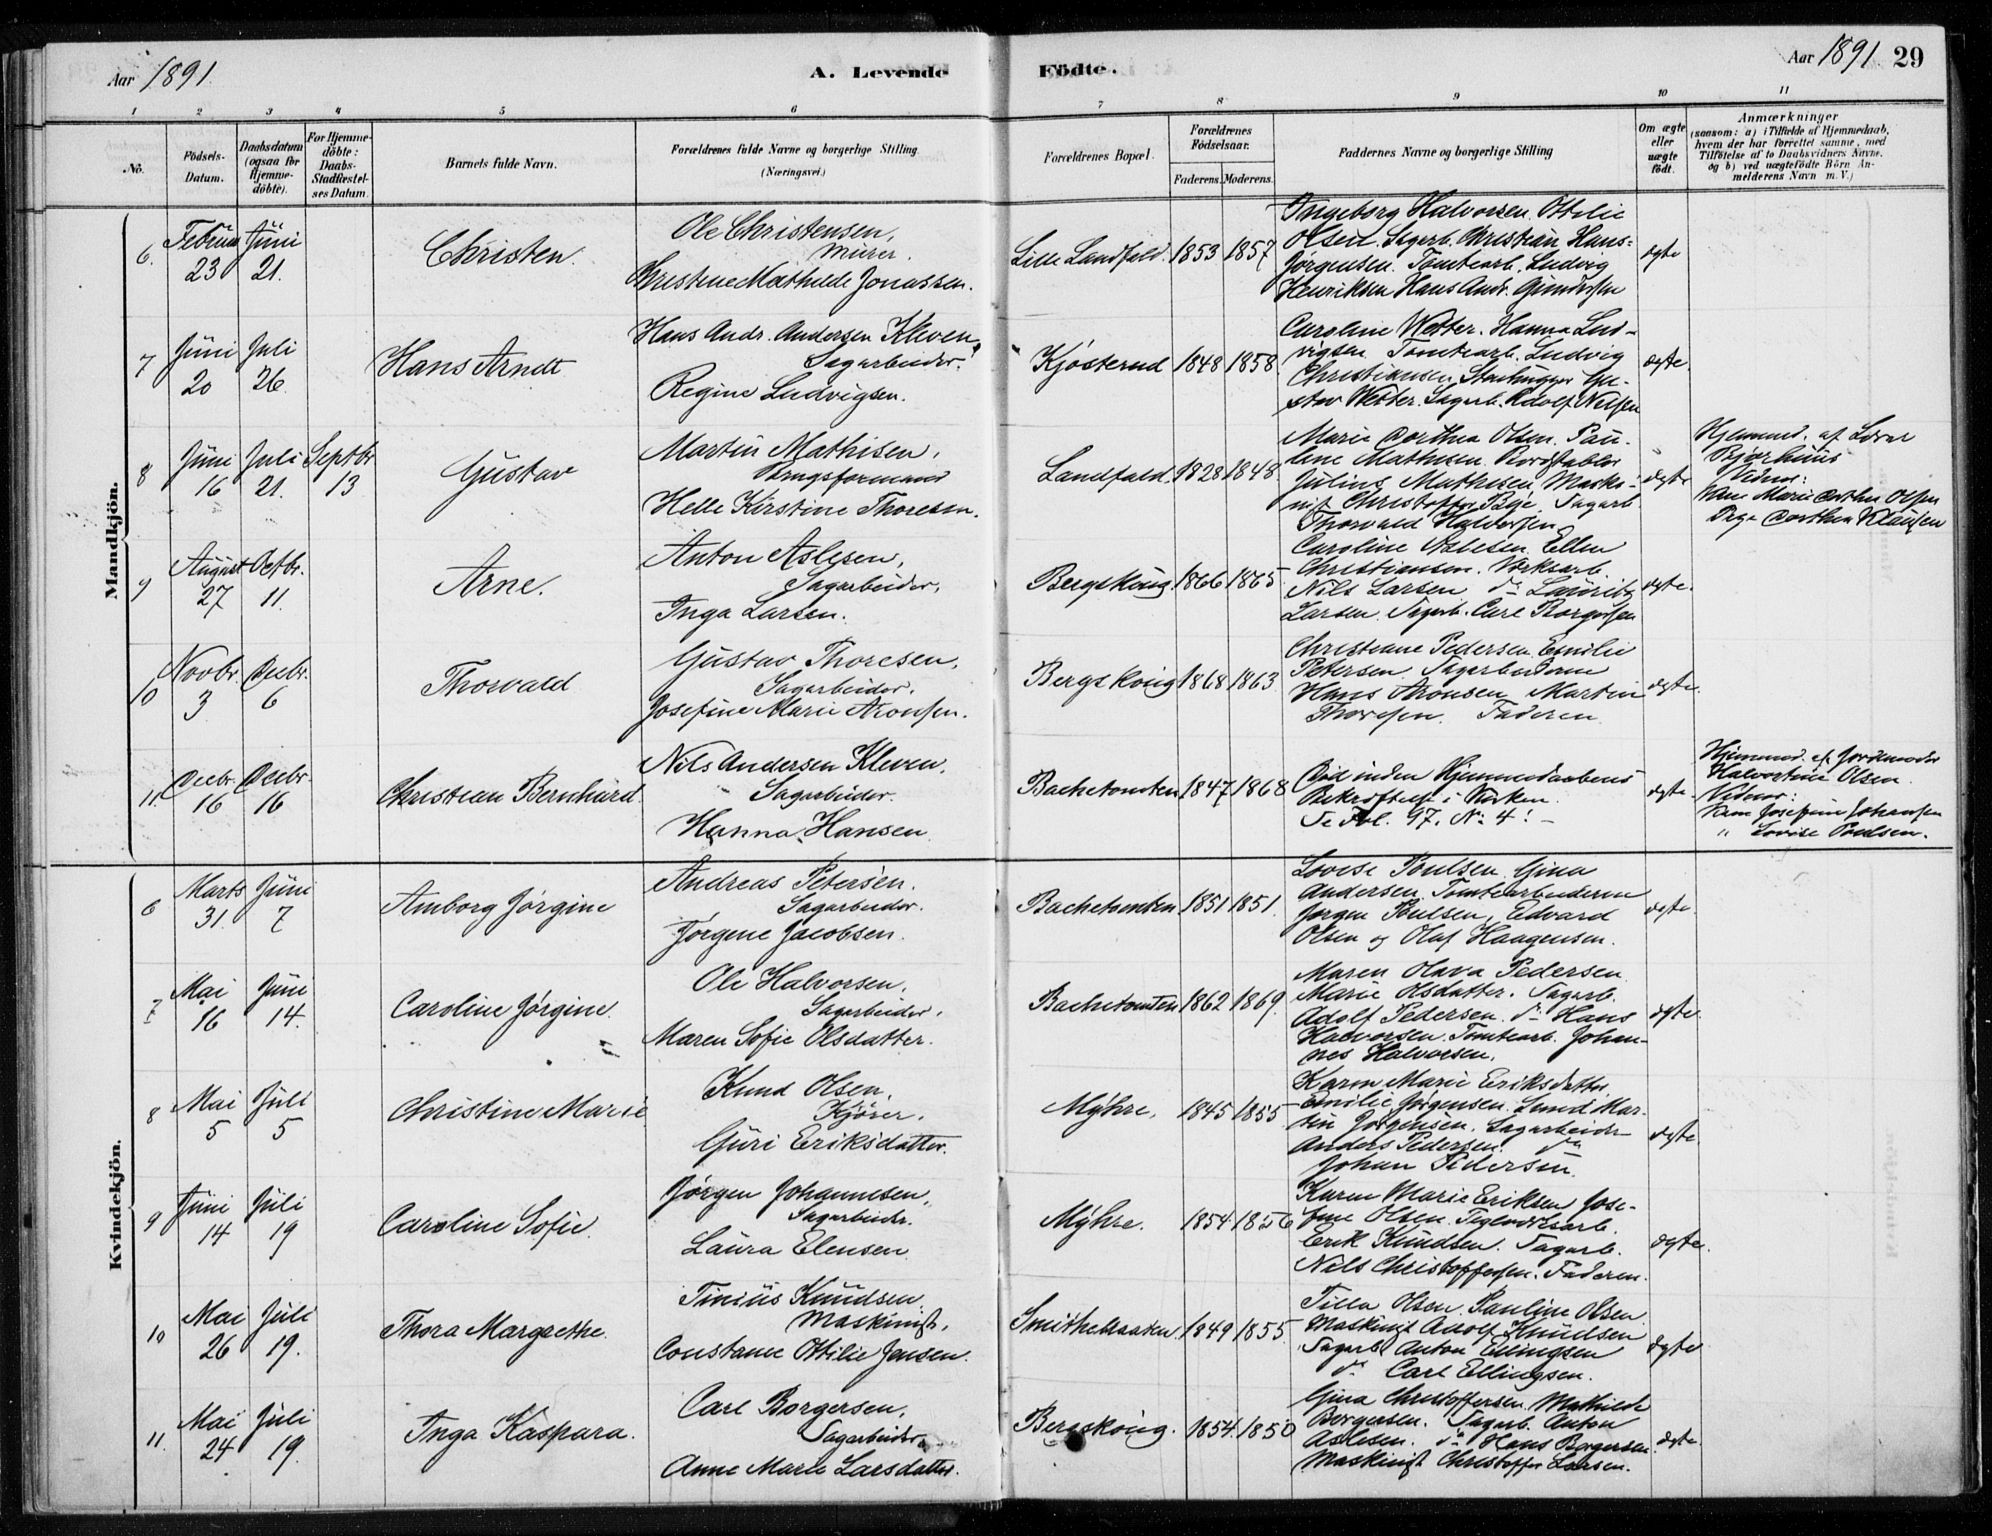 Aar 1891.
A. Levende Födte.
Aar 1891
29
1 2 3 4 5 6 7 8 9 10 11
No.
Födsels-
Datum.
Daabsdatum
(ogsaa for
Hjemme-
döbte).
For Hjemme-
döbte:
Daabs-
Stadfæstel-
ses Datum.
Barnets fulde Navn.
Forældrenes fulde Navne og borgerlige Stilling.
(Næringsvei.)
Forældrenes Bopæl.
Forældrenes
Födselsaar.
Faderens. Moderens.
Faddernes Navne og borgerlige Stilling
Om ægte
eller
uægte
födt.
Anmærkninger
(saasom: a) i Tilfælde af Hjemmedaab,
hvem der har forrettet samme, med
Tilföielse af to Daabsvidners Navne.
og b) ved uægtefödte Börn An-
melderens Navn m. V.)
Mandkjön.
6.
Februar
23
Juni
21.
Christen.
Ole Christensen,
Murer.
Christine Mathilde Jonassen.
Lille Landfald. 1853 1857
Ingeborg Halvorsen Ottilie
Olsen. Sagarb. Christian Hans-
Jørgensen. Tomtearb. Ludvig
Henriksen Hans Andr. Gundersen
ægte
7
Juni
20
Juli
26.
Hans Arndt
Hans Andr. Andersen Kleven,
Sagarbeider.
Regine Ludvigsen.
Kjösterud 1848 1858
Caroline Wetter. Hanna Lud-
vigsen. Tomtearb. Ludvig
Christiansen Stenhugger Gu-
stav Wetter. Sagarb. Adolf Nilsen
ægte.
8
Juni
16
Juli
21.
Septbr
13
Gustav
Martin Mathisen,
Brugsformand
Helle Kirstine Thoresen.
Landfald. 1828 1848
Marie Dorthea Olsen. Pau-
line Mathisen. Bordstabler
Julius Mathisen Maski-
nist Christoffer Bye. Sagarb.
Thorvald Halvorsen
ægte
Hjemmed. af Lærer
Bjerhuus
Vidner:
Ane Marie Dorthea Olsen
Dorthea Klausen
9
August
27
Octbr.
11.
Arne.
Anton Aslesen,
Sagarbeider,
Inga Larsen.
Bergskoug 1866 1865
Caroline Aslesen. Ellen
Christiansen. Værksarb.
Nils Larsen do Lauritz
Larsen Sagarb. Carl Borgersen
ægte.
10
Novbr.
3
Decbr.
6
Thorvald
Gustav Thoresen,
Sagarbeider.
Josefine Marie Aronsen.
Bergskoug 1868 1863
Christiane Pedersen Emilie
Petersen. Sagarbeiderne
Hans Aronsen Martin
Thoresen. Faderen.
ægte.
11.
Decbr.
16
Decbr.
16
Christian Bernhard.
Nils Andersen Kleven,
Sagarbeider.
Hanna Hansen.
Bachetomten 1847 1868
Död inden Hjemmedaabens
Bekræftelse i Kirken.
Se Fol. 97. No 4. –
ægte.
Hjemmed. af Jordmoder
Halvorline Olsen.
Vidner:
Josefine Johansen
" Lovise Poulsen.
Kvindekjön.
6
Marts
31.
Juni
7
Amborg Jørgine
Andreas Petersen.
Sagarbeider.
Jørgene Jacobsen.
Bachetomten 1851 1851.
Lovise Poulsen Gina
Andersen Tomtearbeiderne
Jørgen Poulsen, Edvard
Olsen og Olaf Haagensen.
ægte.
7
Mai
16
Juni
14.
Caroline Jørgine.
Ole Halvorsen,
Sagarbeider,
Maren Sofie Olsdatter.
Bachetomten 1862 1869.
Maren Olava Pedersen
Marie Olsdatter. Sagarb.
Adolf Pedersen do Hans
Halvorsen. Tomtearb. Johan-
nes Halvorsen.
ægte.
8
Mai
5
Juli
5
Christine Marie
Knud Olsen,
Kjörer.
Guri Eriksdatter.
Myhre. 1845 1855
Karen Marie Eriksdatter
Emilie Jørgensen. Smed Mar-
tin Jørgensen. Sagarbeider
Anders Pedersen. do
Johan Pedersen
ægte.
9
Juni
14
Juli
19
Caroline Sofie.
Jørgen Johannesen,
Sagarbeider.
Laura Elensen.
Myhre. 1854. 1856
Karen Marie Eriksen Jose-
fine Olsen. Teglværksarb.
Erik Knudsen. Sagarb.
Nils Christoffersen. Faderen.
ægte.
10
Mai
26
Juli
19.
Thora Margrethe.
Tinius Knudsen
Maskinist,
Constance Ottilie Jensen.
Smithestuen. 1849 1855.
Tilla Olsen. Pauline Olsen
Maskinist Adolf Knudsen
Sagarb. Anton Ellingsen
do Carl Ellingsen.
ægte
11.
Mai
24
Juli
19.
Inga Kaspara.
Carl Borgersen,
Sagarbeider
Anne Marie Larsdatter.
Bergskoug. 1854. 1850
Gina Christoffersen. Mathilde
Borgersen. Sagarb. Anton
Aslesen. do Hans Borgersen
Maskinist Christoffer Larsen.
ægte.